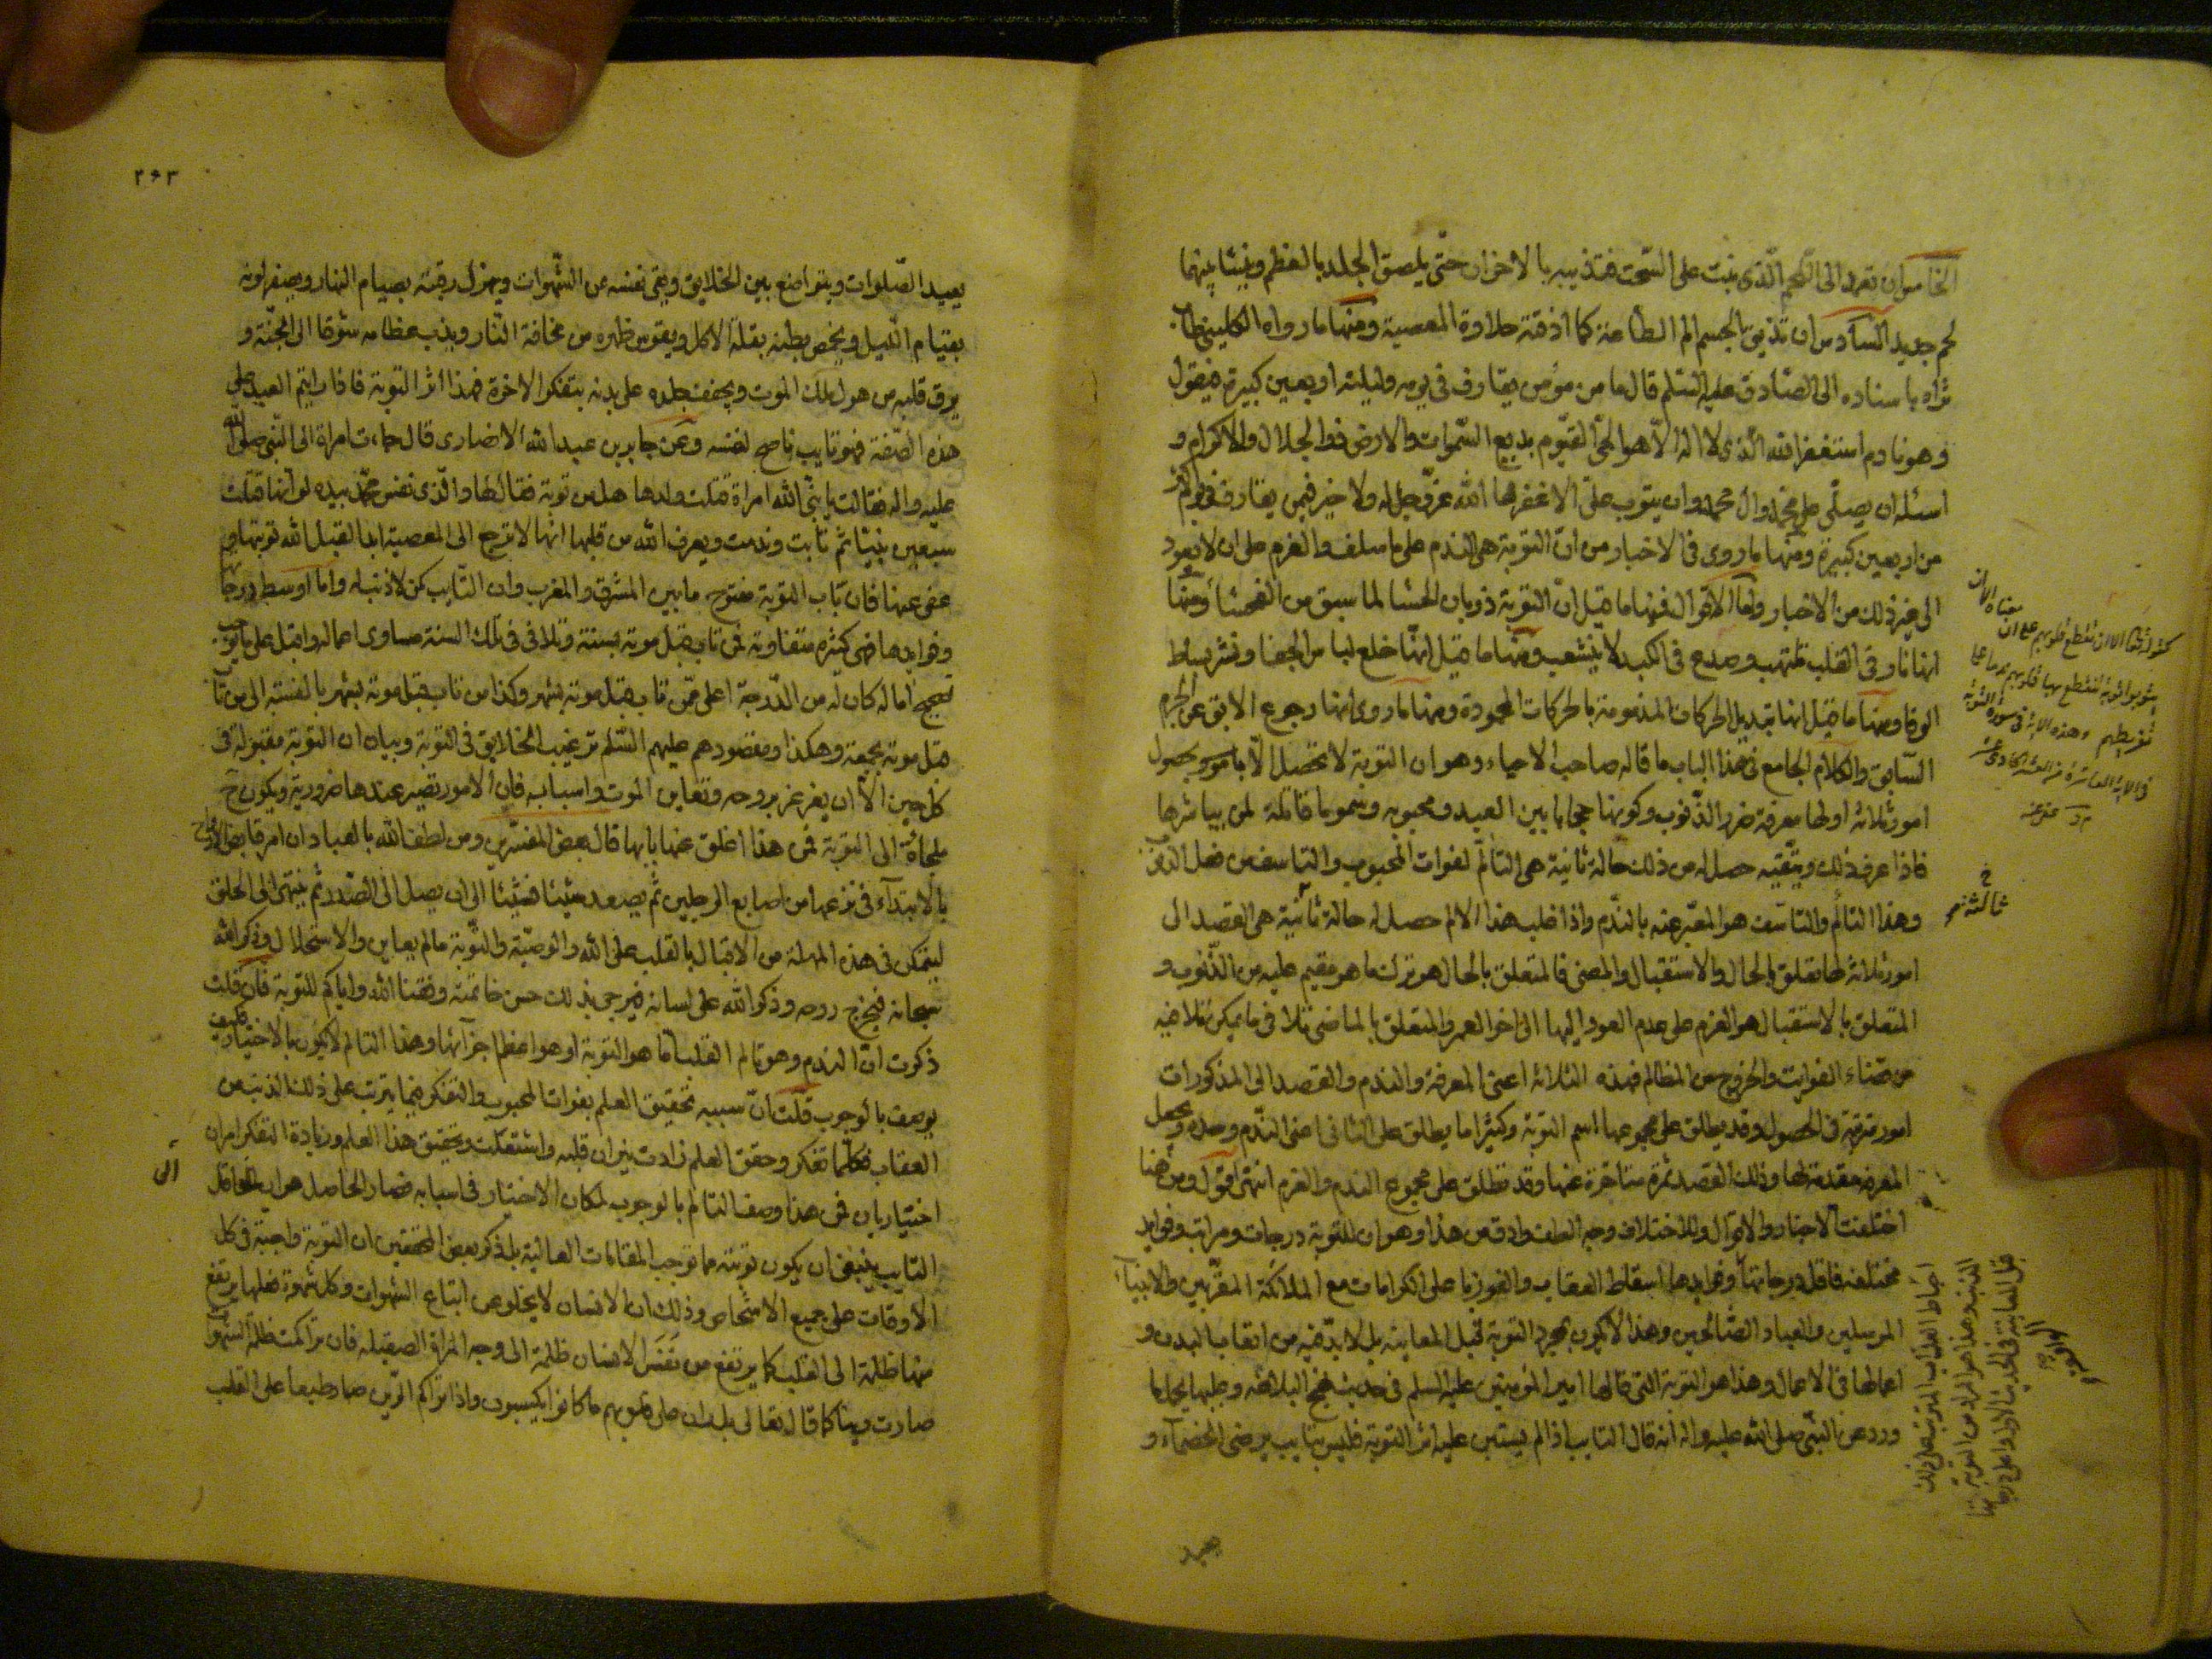 الخامس ان تعمد الى اللحم الذى نبت على السحت فتذيبه بالاحزان حتى يلصق الجلد بالعظم وينشا بينهما
لحم جديد السادس ان تذيق الجسم الم الطاعة كما اذقته حلاوة المعصية ومنها ما رواه الكلينى طاب
ثراه باسناده الى الصادق عليه السلم قال ما من مؤمن يقارف فى يومه وليلته اربعين كبيرة فيقول
وهو نادم استغفر الله الذى لا اله الا هو الحى القيوم بديع السموات والارض ذو الجلال والاكرام و
اسئله ان يصلى على محمد وال محمد وان يتوب على الا غفرها الله عز وجل له ولا خير فيمن يقارف فى يوم اكثر
من اربعين كبيرة ومنها ما روى فى الاخبار من ان التوبة هى الندم على ما سلف والعزم على ان لا يعود
الى غير ذلك من الاخبار واما الاقوال فمنها ما قيل ان التوبة ذوبان الحشا لما سبق من الفحشا ومنها
انها نار فى القلب تلتهب وصدع فى الكبد لا ينشعب ومنها ما قيل انها خلع لباس الجفا ونشر بساط
الوفا ومنها ما قيل انها تبديل الحركات المذمومة بالحركات المحمودة ومنها ما روى انها رجوع الابق عن الجرم
السابق والكلام الجامع فى هذا الباب ما قاله صاحب الاحياء وهو ان التوبة لا تحصل الا بحصول
امور ثلاثة اولها معرفة ضرر الذنوب وكونها حجابا بين العبد ومحبوبه وسموما قاتلة لمن يباشرها
فاذا عرف ذلك وتيقنه حصل له من ذلك حالة ثانية هى التالم لفوات المحبوب والتاسف من فعل الذنوب
وهذا التالم والتاسف هو المعبر عنه بالندم واذا غلب هذا الالم حصل له حالة ثانية هى القصد الى
امور ثلاثة لها تعلق بالحال والاستقبال والمضى فالمتعلق بالحال هو ترك ما هو مقيم عليه من الذنوب و
المتعلق بالاستقبال هو العزم على عدم العود اليها الى اخر العمر والمتعلق بالماضى تلافى ما يمكن تلافيه
من قضاء الفوايت والخروج من المظالم فهذه الثلاثة اعنى المعرفة والندم والقصد الى المذكورات
امور مترتبة فى الحصول وقد يطلق على مجموعها اسم التوبة وكثيرا ما يطلق على الثانى اعنى الندم وحده وتجعل
المعرفة مقدمة لها وذلك القصد ثمرة متاخرة عنها وقد تطلق على مجموع الندم والعزم انتهى اقول ومن هنا
اختلفت الاخبار والاقوال وللاختلاف وجه الطف وادق من هذا وهو ان للتوبة درجات ومراتب وفوايد
مختلفة فاقل درجاتها وفوايدها اسقاط العقاب والفوز باعلى الكرامات مع الملائكة المقربين والانبيآ
المرسلين والعباد الصالحين وهذا لا يكون بمجرد التوبة قبل المعاينة بل لا بد فيه من اتعاب البدن و
اعمالها فى الاعمال وهذا هو التوبة التى قالها امير المؤمنين عليه السلم فى حديث نهج البلاغة وجلبها
ورد عن النبى صلى الله عليه واله انه قال التايب اذا لم يستبن عليه اثر التوبة فليس بتايب يرضى الخصمآء و
يعيد
ثالثة
٢٤٣
يعيد الصلوات ويتواضع بين الخلايق ويقى نفسه من الشهوات ويهزل رقبته بصيام النهار ويصفر لونه
بقيام الليل ويخمص بطنه بقلة الاكل ويقوس ظهره من مخافة النار ويذيب عظامه شوقا الى الجنة و
يرق قلبه من هول ملك الموت ويجفف جلده على بدنه بتفكر الاخرة فهذا اثر التوبة فاذا رايتم العبد على
هذه الصفة فهو تايب ناصح لنفسه وعن جابر بن عبد الله الانصارى قال جاءت امراة الى النبى صلى الله
عليه واله فقالت يا نبى الله امراة قتلت ولدها هل من توبة فقال لها والذى نفس محمد بيده لو انها قتلت
سبعين نبيا ثم تابت وندمت ويعرف الله من قلبها انها لا ترجع الى المعصية ابدا لقبل الله توبتها و
عفى عنها فان باب التوبة مفتوح ما بين المشرق والمغرب وان التايب كمن لا ذنب له واما اوسط درجاتها
وفوايدها فهى كثيرة متفاوتة فمن تاب قبل موته بسنة وتلافى فى تلك السنة مساوى اعماله واقبل على ما يوجب
نجح اماله كان له من الدرجة اعلى ممن تاب قبل موته بشهر وكذا من تاب قبل موته بشهر بالنسبة الى من تاب
قبل موته بجمعة وهكذا ومقصودهم عليهم السلم ترغيب الخلايق فى التوبة وبيان ان التوبة مقبولة فى
كل حين الا ان يغرغر بروحه وتعاين الموت واسبابه فان الامور تصير عندها ضرورية ويكون ح
ملجاة الى التوبة فمن هذا اغلق عنها بابها قال بعض المفسرين ومن لطف الله بالعباد ان امر قابض الارواح
بالابتدآء فى نزعها من اصابع الرجلين ثم يصعد شيئا فشيئا الى ان يصل الى الصدر ثم ينتهى الى الحلق
ليتمكن فى هذه المهلة من الاقبال بالقلب على الله والوصية والتوبة ما لم يعاين والاستحلال وذكر الله
سبحانه فيخرج روحه وذكر الله على لسانه فيرجى بذلك حسن خاتمته وفقنا الله واياكم للتوبة فان قلت
ذكرت ان الندم وهو تالم القلب اما هو التوبة او هو اعظم اجزآئها وهذا التالم لا يكون بالاختيار فكيف
يوصف بالوجوب قلت ان سببه تحقيق العلم بفوات المحبوب والتفكر فيما يترتب على ذلك الذنب من
العقاب فكلما تفكر وحقق العلم زادت نيران قلبه واشتعلت وتحقيق هذا العلم وزيادة التفكر امران
اختياريان فمن هذا وصف التالم بالوجوب لمكان الاختيار فى اسبابه فصار الحاصل هو ان العاقل
التايب ينبغى ان يكون توبته مما توجب المقامات العالية بل ذكر بعض المحققين ان التوبة واجبة فى كل
الاوقات على جميع الاشخاص وذلك ان الانسان لا يخلو عن اتباع الشهوات وكل شهوة فعلها يرتفع
منها ظلمة الى القلب كما يرتفع من نفس الانسان ظلمة الى وجه المراة الصقيلة فان تراكمت ظلمة الشهوات
صارت رينا كما قال تعالى بل ران على قلوبهم ما كانوا يكسبون واذا تراكم الرين صار طبعا على القلب